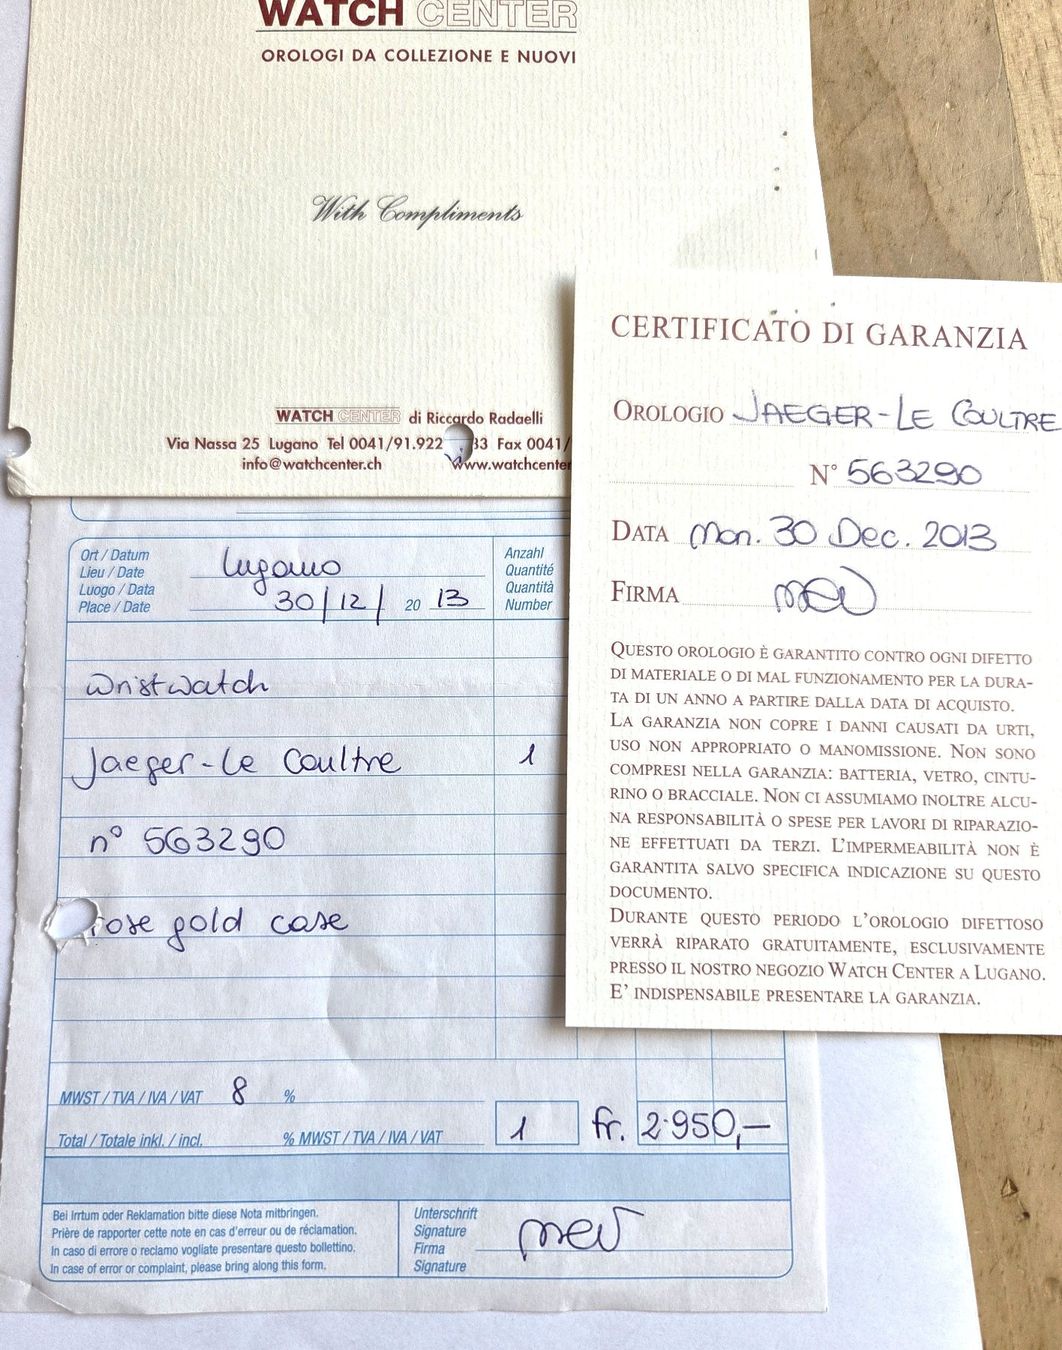 WATCH CENTER
OROLOGI DA COLLEZIONE E NUOVI
With Compliments
WATCH CENTER di Riccardo Radaelli
Via Nassa 25 Lugano Tel 0041/91.922 33 Fax 0041/
info@watchcenter.ch www.watchcenter
CERTIFICATO DI GARANZIA
OROLOGIO JAEGER-LE COULTRE
N° 563290
DATA Mon. 30 Dec. 2013
FIRMA
QUESTO OROLOGIO È GARANTITO CONTRO OGNI DIFETTO
DI MATERIALE O DI MAL FUNZIONAMENTO PER LA DURA-
TA DI UN ANNO A PARTIRE DALLA DATA DI ACQUISTO.
LA GARANZIA NON COPRE I DANNI CAUSATI DA URTI,
USO NON APPROPRIATO O MANOMISSIONE. NON SONO
COMPRESI NELLA GARANZIA: BATTERIA, VETRO, CINTU-
RINO O BRACCIALE. NON CI ASSUMIAMO INOLTRE ALCU-
NA RESPONSABILITÀ O SPESE PER LAVORI DI RIPARAZIO-
NE EFFETTUATI DA TERZI. L'IMPERMEABILITÀ NON È
GARANTITA SALVO SPECIFICA INDICAZIONE SU QUESTO
DOCUMENTO.
DURANTE QUESTO PERIODO L'OROLOGIO DIFETTOSO
VERRÀ RIPARATO GRATUITAMENTE, ESCLUSIVAMENTE
PRESSO IL NOSTRO NEGOZIO WATCH CENTER A LUGANO.
E' INDISPENSABILE PRESENTARE LA GARANZIA.
Ort / Datum
Lieu / Date
Luogo / Data
Place / Date
Lugano
30/12/ 20 13
Anzahl
Quantité
Quantità
Number
wristwatch
Jaeger-Le Coultre 1
n° 563290
rose gold case
MWST / TVA / IVA / VAT 8 %
Total / Totale inkl. / incl. % MWST / TVA / IVA / VAT 1 fr. 2·950,—
Bei Irrtum oder Reklamation bitte diese Nota mitbringen.
Prière de rapporter cette note en cas d'erreur ou de réclamation.
In caso di errore o reclamo vogliate presentare questo bollettino.
In case of error or complaint, please bring along this form.
Unterschrift
Signature
Firma
Signature